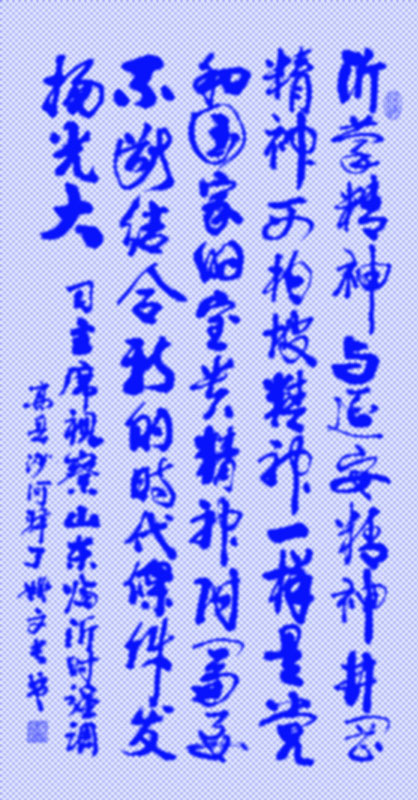 沂蒙精神与延安精神井冈
精神西柏坡精神一样是党
和国家的宝贵精神财富要
不断结合新的時代條件发
扬光大
习主席视察山东临沂时强调
沙河